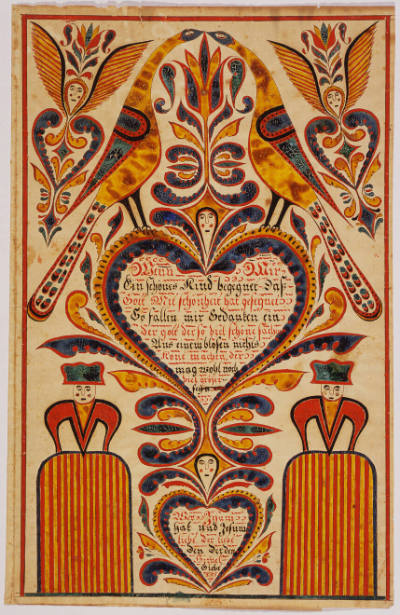 Wenn Mir
Ein schönes Kind begegnet Daß
Gott Mit schönheit hat gesegnet
Es fallen mir Gedanken ein
der gott der so viel schöne sachn
Aus einem blosen nichts
Könt machen der
mag wohl noch
viel
hat und Jesum
liebt der liebt
den der den
Himel
Giebt